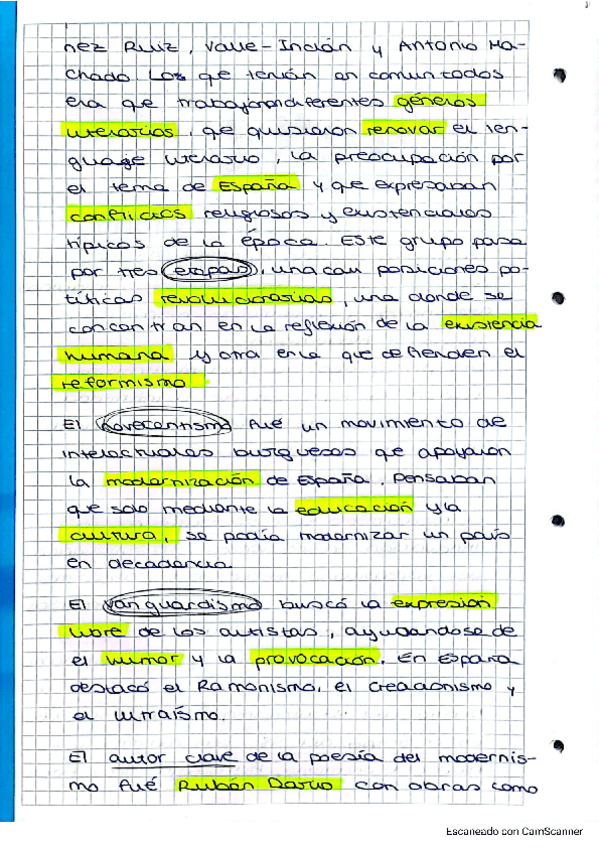 nez Ruiz, Valle-Inclán y Antonio Ma-
chado. Los que tenían en común todos
era que trabajaron diferentes géneros
literarios, que quisieron renovar el len-
guaje literario, la preocupación por
el tema de España y que expresaban
conflictos religiosos y existenciales
típicos de la época. Este grupo pasa
por tres etapas, una con posiciones po-
líticas revolucionarias, una donde se
concentran en la reflexión de la existencia
humana y otra en la que defienden el
reformismo.
El novecentismo fué un movimiento de
intelectuales burgueses que apoyaron
la modernización de España. Pensaban
que solo mediante la educación y la
cultura, se podía modernizar un país
en decadencia.
El vanguardismo buscó la expresión
libre de los artistas, ayudandose de
el humor y la provocación. En España
destacó el Ramonismo, el creacionismo y
el ultraísmo.
El autor clave de la poesía del modernis-
mo fué Rubén Darío con obras como
Escaneado con CamScanner